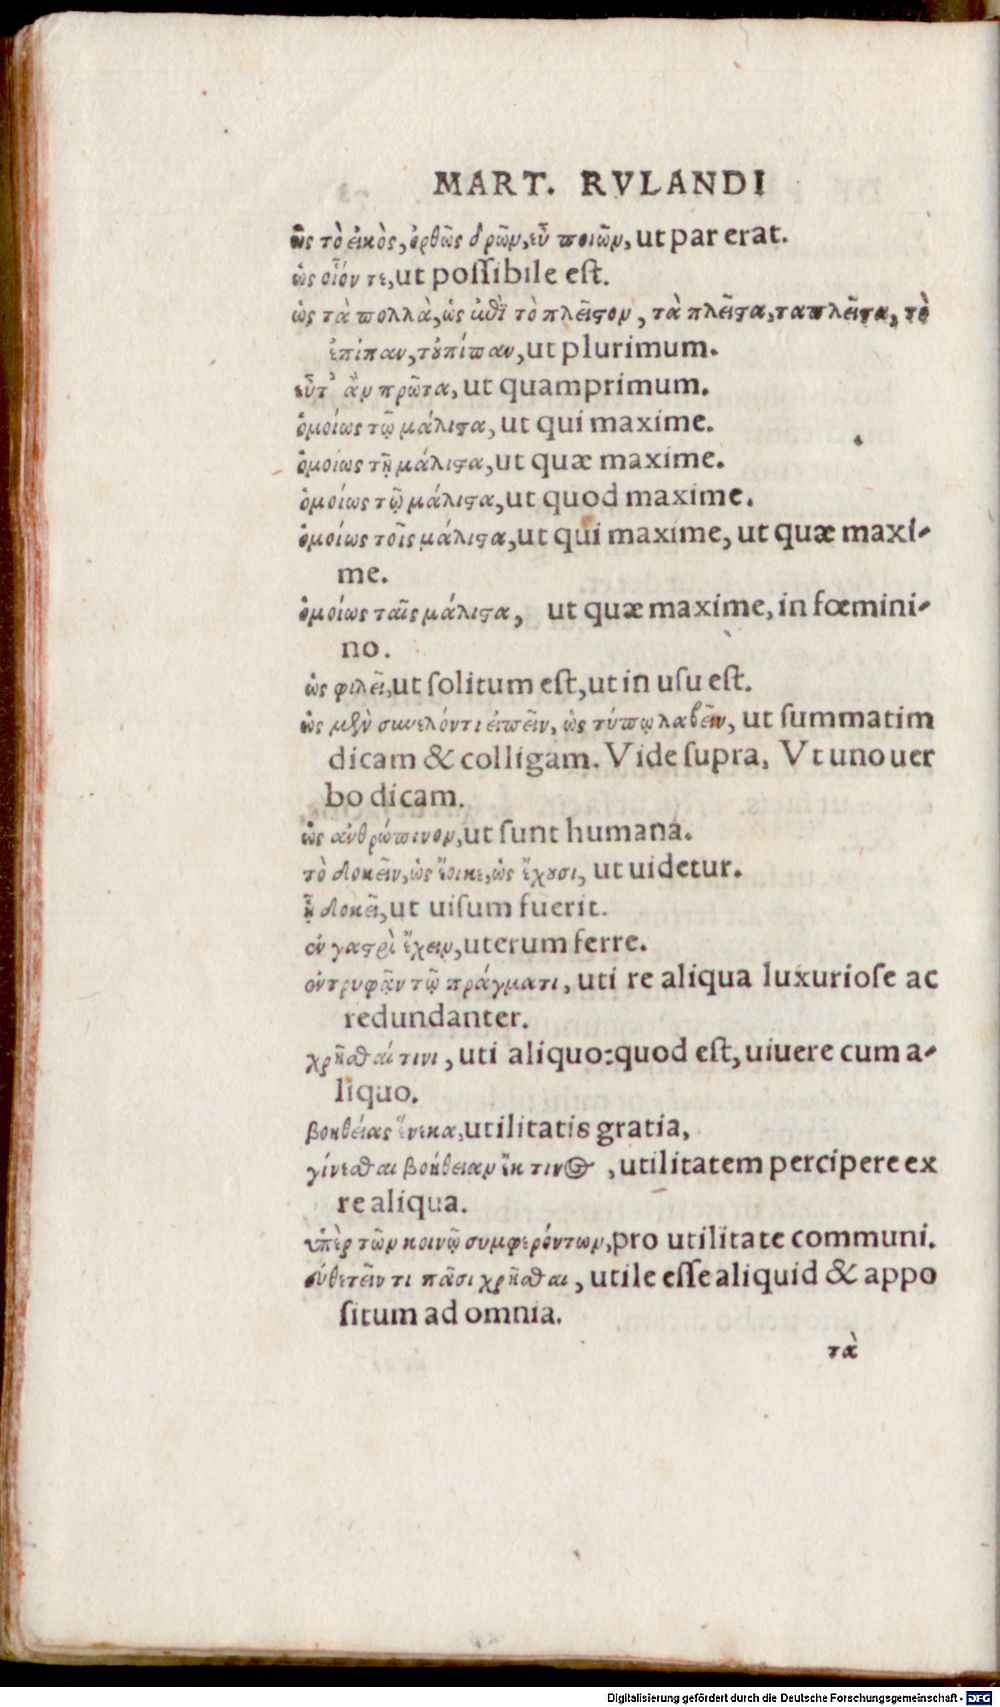 MART. RVLANDI
ὡς τὸ εἰκὸς, ὀρθῶς δρῶν, εὖ ποιῶν, ut par erat.
ὡς οἷόν τε, ut poſſibile eſt.
ὡς τὰ πολλὰ, ὡς ἐπὶ τὸ πλεῖστον, τὰ πλεῖστα, ταπλεῖστα, τὸ
ἐπίπαν, τοὐπίπαν, ut plurimum.
εὖτ' ἂν πρῶτα, ut quamprimum.
ὁμοίως τῷ μάλιστα, ut qui maxime.
ὁμοίως τῇ μάλιστα, ut quæ maxime.
ὁμοίως τῷ μάλιστα, ut quod maxime.
ὁμοίως τοῖς μάλιστα, ut qui maxime, ut quæ maxi-
me.
ὁμοίως ταῖς μάλιστα, ut quæ maxime, in fœmini-
no.
ὡς φιλεῖ, ut ſolitum eſt, ut in uſu eſt.
ὡς μὲν συνελόντι εἰπεῖν, ὡς τύπῳ λαβεῖν, ut ſummatim
dicam & colligam. Vide ſupra, Vt uno uer
bo dicam.
ὡς ἀνθρώπινον, ut ſunt humana.
τὸ δοκεῖν, ὡς ἔοικε, ὡς ἔχουσι, ut uidetur.
ᾗ δοκεῖ, ut uiſum fuerit.
ἐν γαστρὶ ἔχειν, uterum ferre.
ἐντρυφᾷν τῷ πράγματι, uti re aliqua luxurioſe ac
redundanter.
χρῆσθαί τινι, uti aliquo: quod eſt, uiuere cum a-
liquo.
βοηθείας ἕνεκα, utilitatis gratia,
γίνεσθαι βοήθειαν ἔκ τινος, utilitatem percipere ex
re aliqua.
ὑπὲρ τῶν κοινῷ συμφερόντων, pro utilitate communi.
εὐθετεῖν τι πᾶσι χρῆσθαι, utile eſſe aliquid & appo
ſitum ad omnia.
τὰ
Digitalisierung gefördert durch die Deutsche Forschungsgemeinschaft - DFG